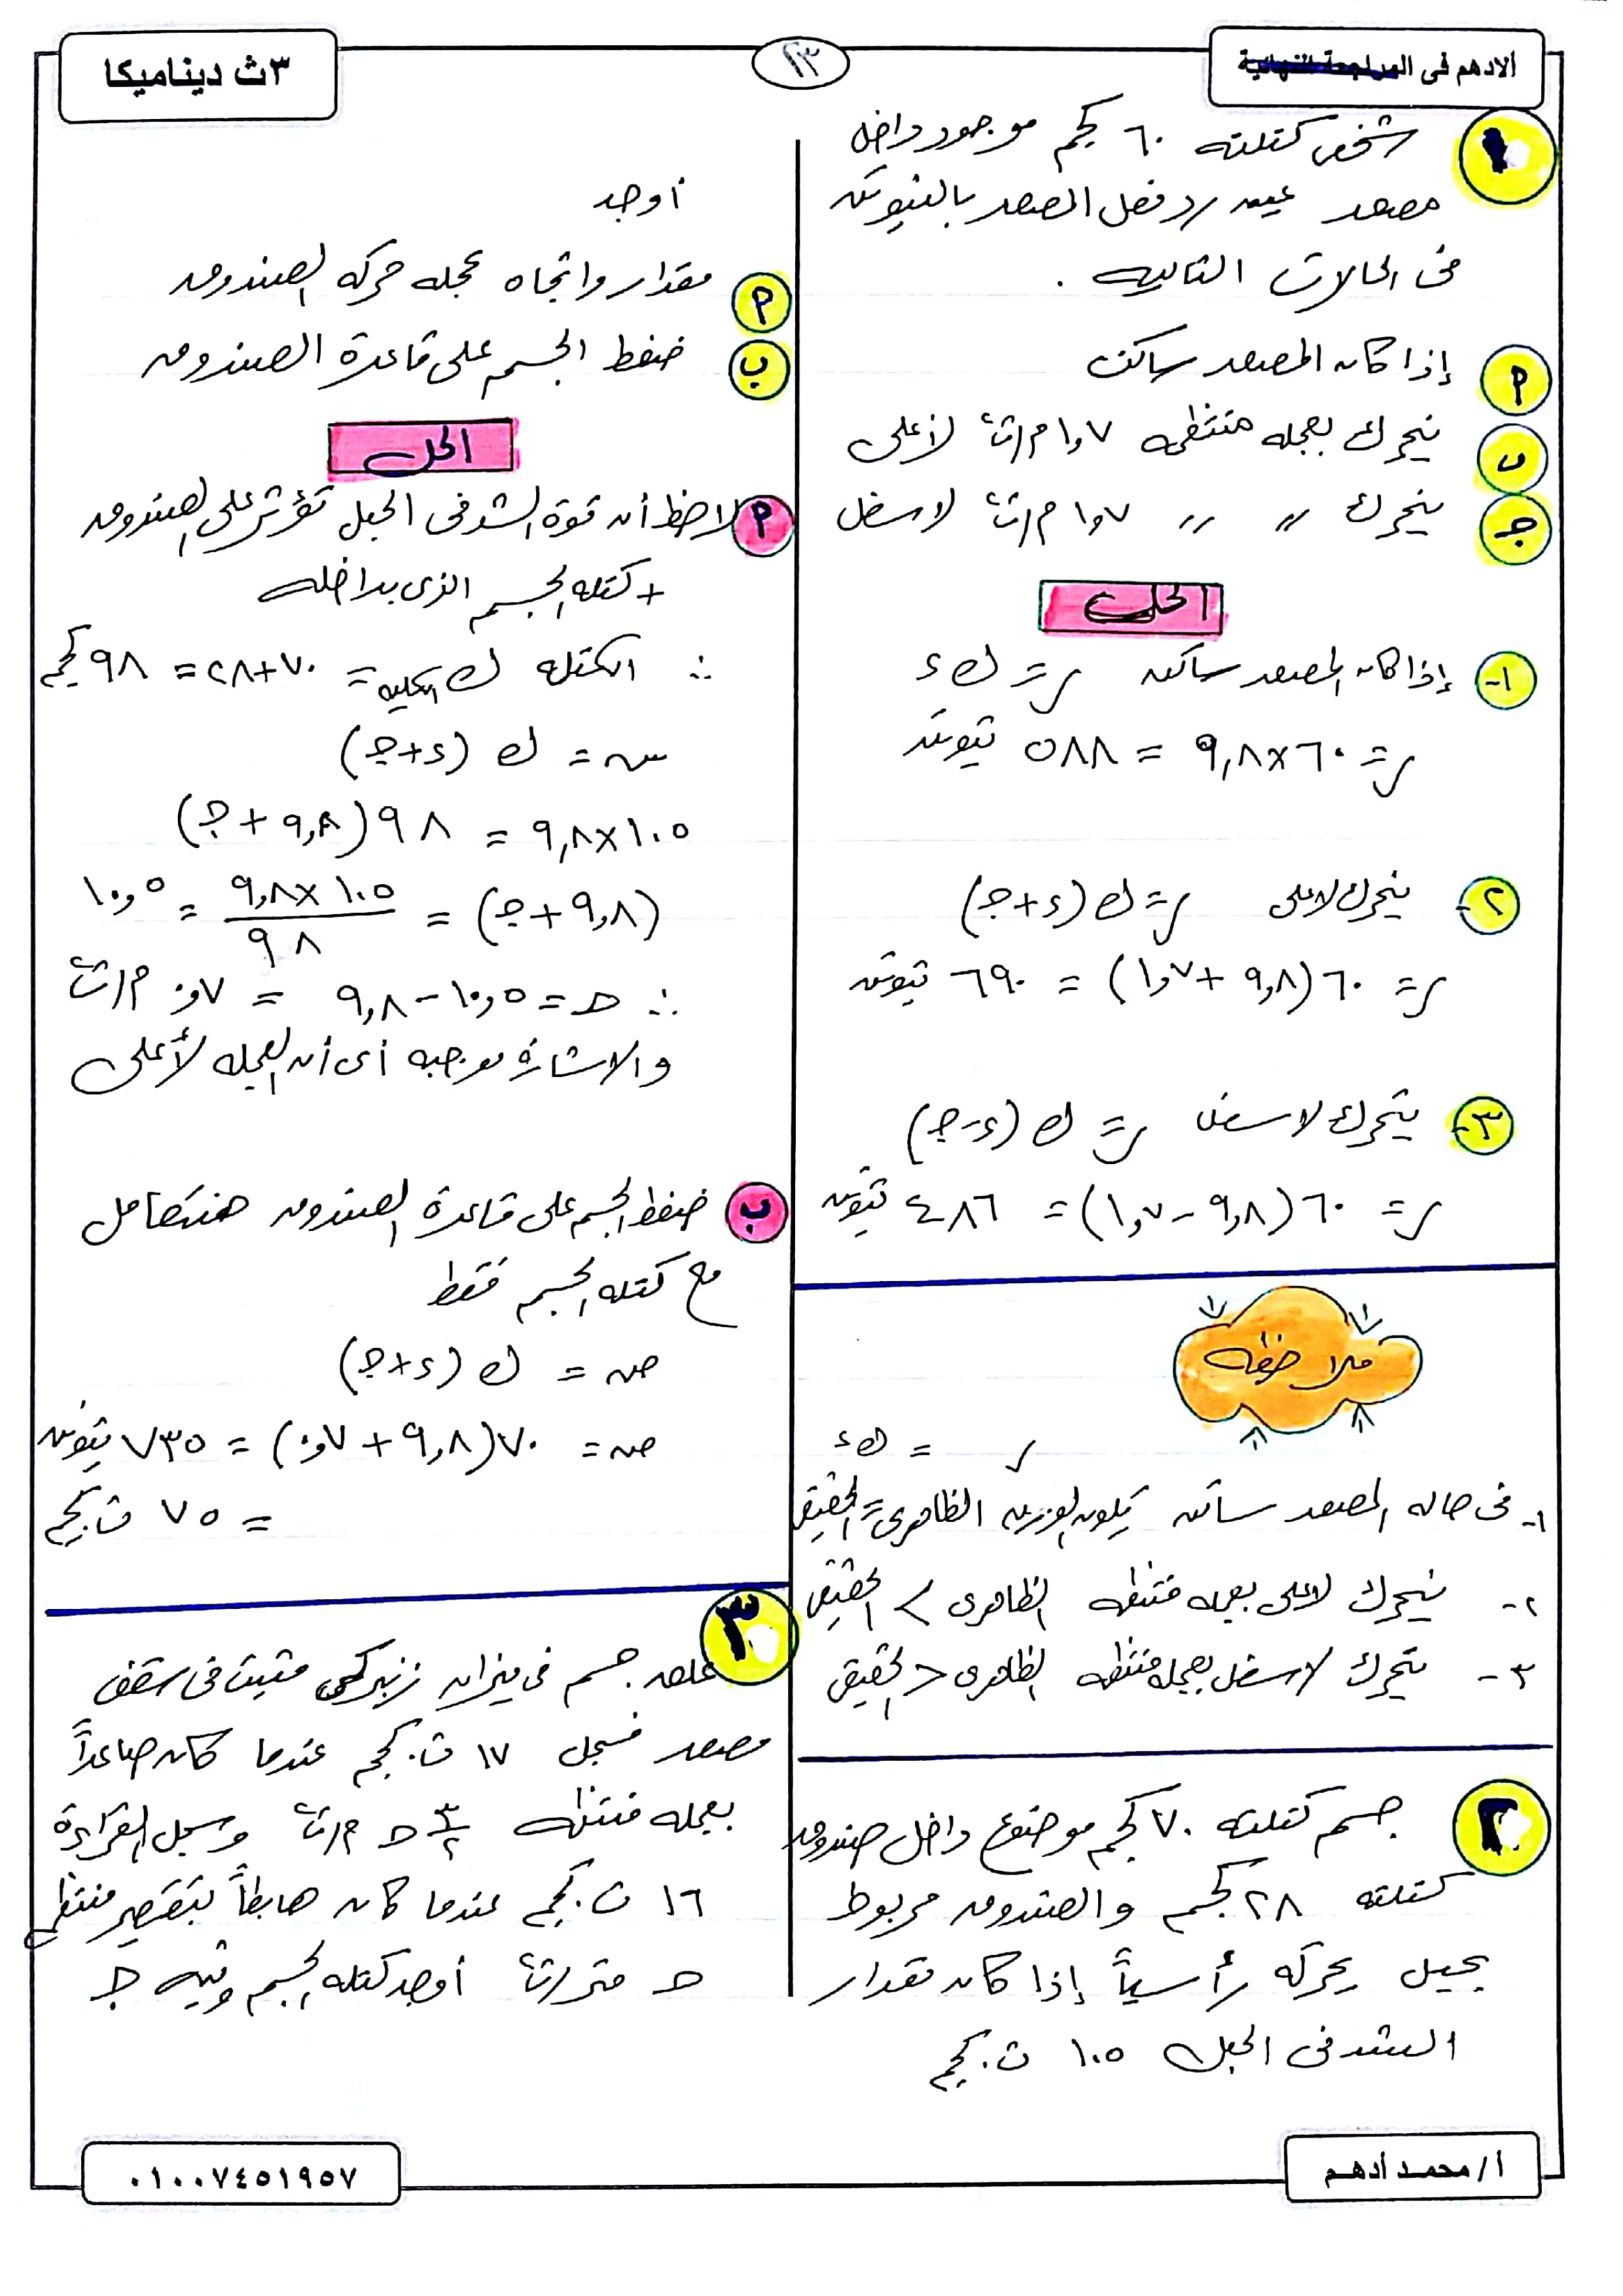 الادهم فى المراجعة النهائية
٢٣
٣ث ديناميكا
١ شخص كتلته ٦٠ كجم موجود داخل
مصعد عين رد فعل المصعد بالنيوتن
فى الحالات التالية .
٩ إذا كان المصعد ساكن
ب يتحرك بعجله منتظمه ١,٧ م/ث٢ لأعلى
جـ يتحرك 〃 〃 ١,٧ م/ث٢ لاسفل
الحل
١- إذا كان المصعد ساكن ر = ك ء
ر = ٦٠ × ٩,٨ = ٥٨٨ نيوتن
٢- يتحرك لاعلى ر = ك (ء + جـ)
ر = ٦٠ (٩,٨ + ١,٧) = ٦٩٠ نيوتن
٣- يتحرك لاسفل ر = ك (ء - جـ)
ر = ٦٠ (٩,٨ - ١,٧) = ٤٨٦ نيوتن
ملاحظه
ر = ك ء
١- فى حاله المصعد ساكن يكون الوزن الظاهرى = الحقيقى
٢- يتحرك لاعلى بعجله منتظمه الظاهرى > الحقيقى
٣- يتحرك لاسفل بعجله منتظمه الظاهرى < الحقيقى
٢ جسم كتلته ٧٠ كجم موضوع داخل صندوق
كتلته ٢٨ كجم والصندوق مربوط
بحبل يحركه رأسياً إذا كان مقدار
الشد فى الحبل ١٠٥ ث.كجم
أوجد
٩ مقدار واتجاه عجله حركه الصندوق
ب ضغط الجسم على قاعدة الصندوق
الحل
٩ لاحظ أن قوة الشد فى الحبل تؤثر على الصندوق
+ كتله الجسم الذى بداخله
∴ الكتله ك الكليه = ٧٠ + ٢٨ = ٩٨ كجم
ش = ك (ء + جـ)
١٠٥ × ٩,٨ = ٩٨ (٩,٨ + جـ)
(٩,٨ + جـ) = ١٠٥ × ٩,٨ / ٩٨ = ١٠,٥
∴ حـ = ١٠,٥ - ٩,٨ = ٠,٧ م/ث٢
والاشارة موجبه أى أن العجله لأعلى
ب ضغط الجسم على قاعدة الصندوق هنتعامل
مع كتله الجسم فقط
ض = ك (ء + جـ)
ض = ٧٠ (٩,٨ + ٠,٧) = ٧٣٥ نيوتن
= ٧٥ ث.كجم
٣ علق جسم فى ميزان زنبركى مثبت فى سقف
مصعد فسجل ١٧ ث.كجم عندما كان صاعداً
بعجله منتظمه ٣/٢ حـ م/ث٢ وسجل القراءة
١٦ ث.كجم عندما كان هابطاً بتقصير منتظم
حـ متر/ث٢ أوجد كتله الجسم وقيمه جـ
أ/ محمد أدهم
٠١٠٠٧٤٥١٩٥٧